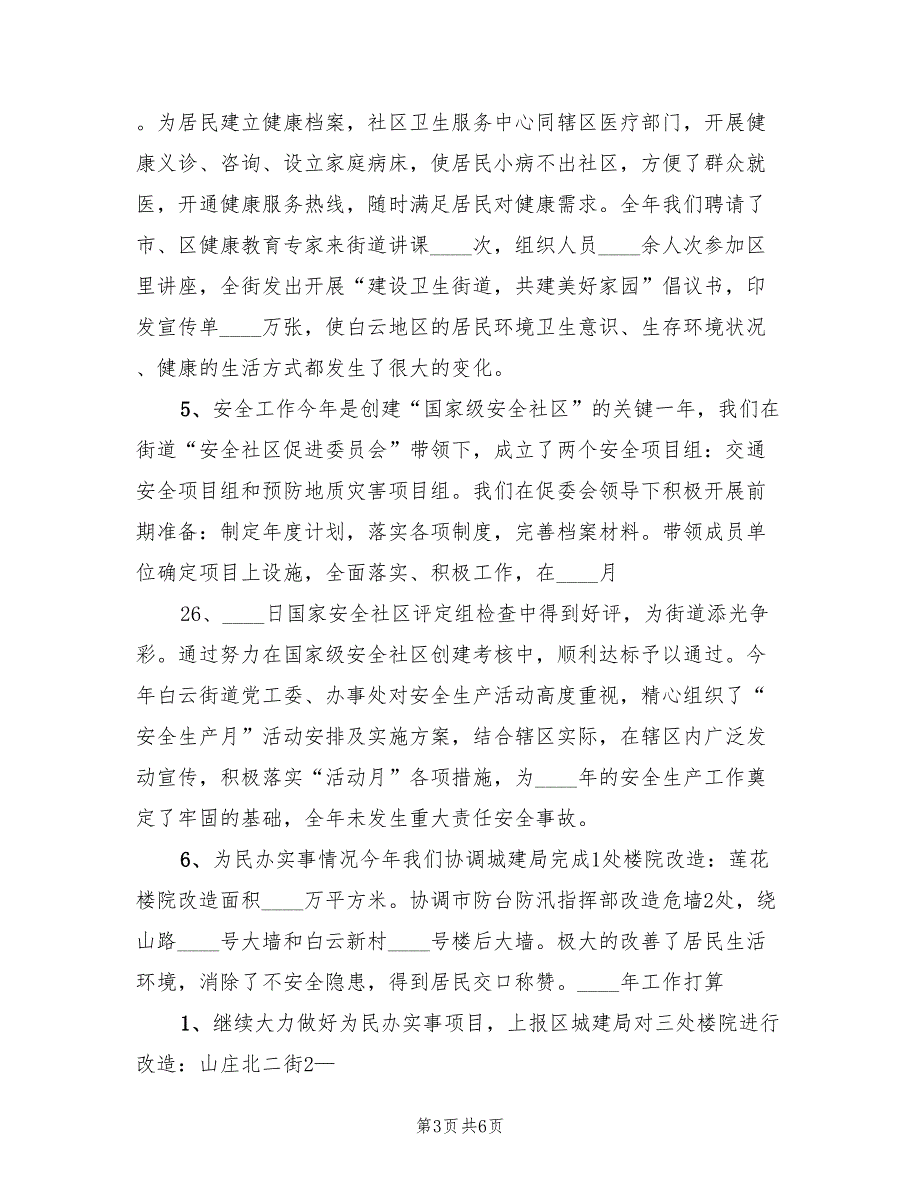 。为居民建立健康档案，社区卫生服务中心同辖区医疗部门，开展健
康义诊、咨询、设立家庭病床，使居民小病不出社区，方便了群众就
医，开通健康服务热线，随时满足居民对健康需求。全年我们聘请了
市、区健康教育专家来街道讲课____次，组织人员____余人次参加区
里讲座，全街发出开展“建设卫生街道，共建美好家园”倡议书，印
发宣传单____万张，使白云地区的居民环境卫生意识、生存环境状况
、健康的生活方式都发生了很大的变化。
5、安全工作今年是创建“国家级安全社区”的关键一年，我们在
街道“安全社区促进委员会”带领下，成立了两个安全项目组：交通
安全项目组和预防地质灾害项目组。我们在促委会领导下积极开展前
期准备：制定年度计划，落实各项制度，完善档案材料。带领成员单
位确定项目上设施，全面落实、积极工作，在____月
26、____日国家安全社区评定组检查中得到好评，为街道添光争
彩。通过努力在国家级安全社区创建考核中，顺利达标予以通过。今
年白云街道党工委、办事处对安全生产活动高度重视，精心组织了“
安全生产月”活动安排及实施方案，结合辖区实际，在辖区内广泛发
动宣传，积极落实“活动月”各项措施，为____年的安全生产工作奠
定了牢固的基础，全年未发生重大责任安全事故。
6、为民办实事情况今年我们协调城建局完成1处楼院改造：莲花
楼院改造面积____万平方米。协调市防台防汛指挥部改造危墙2处，绕
山路____号大墙和白云新村____号楼后大墙。极大的改善了居民生活
环境，消除了不安全隐患，得到居民交口称赞。____年工作打算
1、继续大力做好为民办实事项目，上报区城建局对三处楼院进行
改造：山庄北二街2—
第3页 共6页